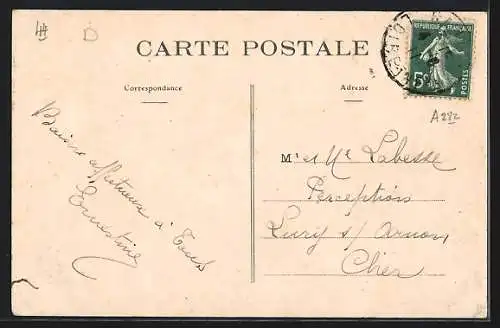 CARTE POSTALE
Correspondance
Adresse
RÉPUBLIQUE FRANÇAISE
5c
POSTES
A282
Baisers affectueux à Tous
Ernestine
Mr et Me Labesse
Perception
Lury s/ Arnon
Cher